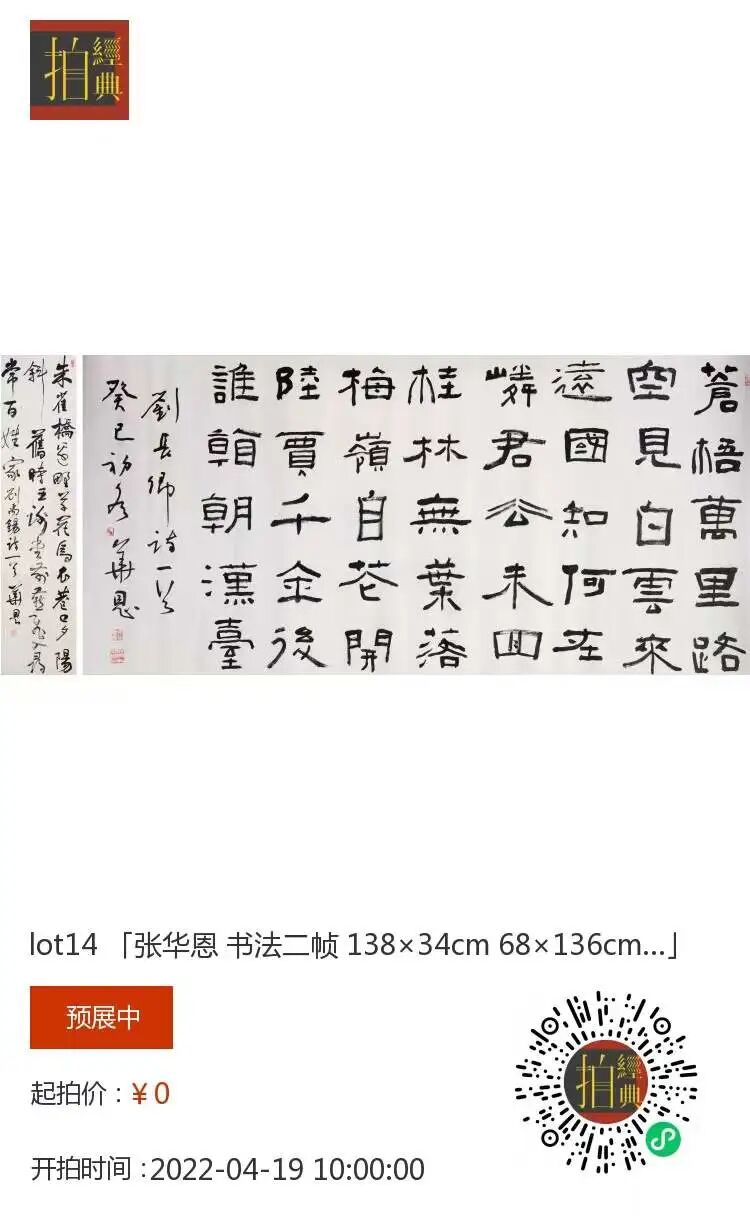 拍
經典
朱雀橋邊野草花烏衣巷口夕陽
斜舊時王謝堂前燕飛入尋
常百姓家 劉禹錫詩一首 華恩
蒼梧萬里路
空見白雲來
遠國知何在
憐君公未回
桂林無葉落
梅嶺自花開
陸賈千金後
誰朝漢臺
劉長卿詩一首
癸巳初冬 華恩
lot14 「张华恩 书法二帧 138×34cm 68×136cm...」
预展中
起拍价：￥0
拍
經典
开拍时间：2022-04-19 10:00:00